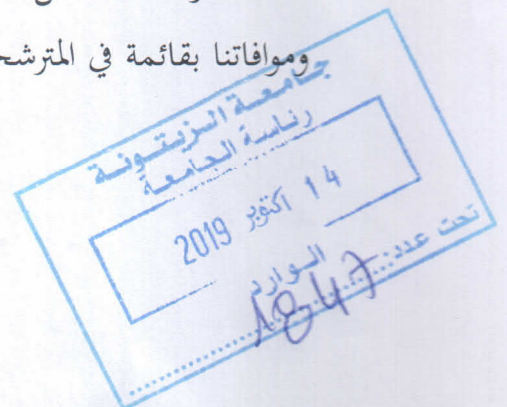 وموافاتنا بقائمة في المترشح
جامعة الزيتونة
رئاسة الجامعة
14 اكتوبر 2019
الوارد
تحت عدد: 1847